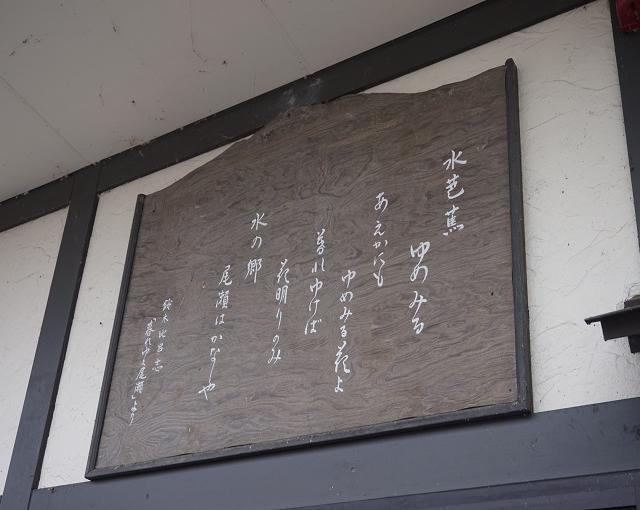 水芭蕉
ゆめみる
あえかにも
ゆめみる花よ
暮れゆけば
花明りのみ
水の郷
尾瀬はかなしや
鈴木比呂志
「暮れゆく尾瀬」より